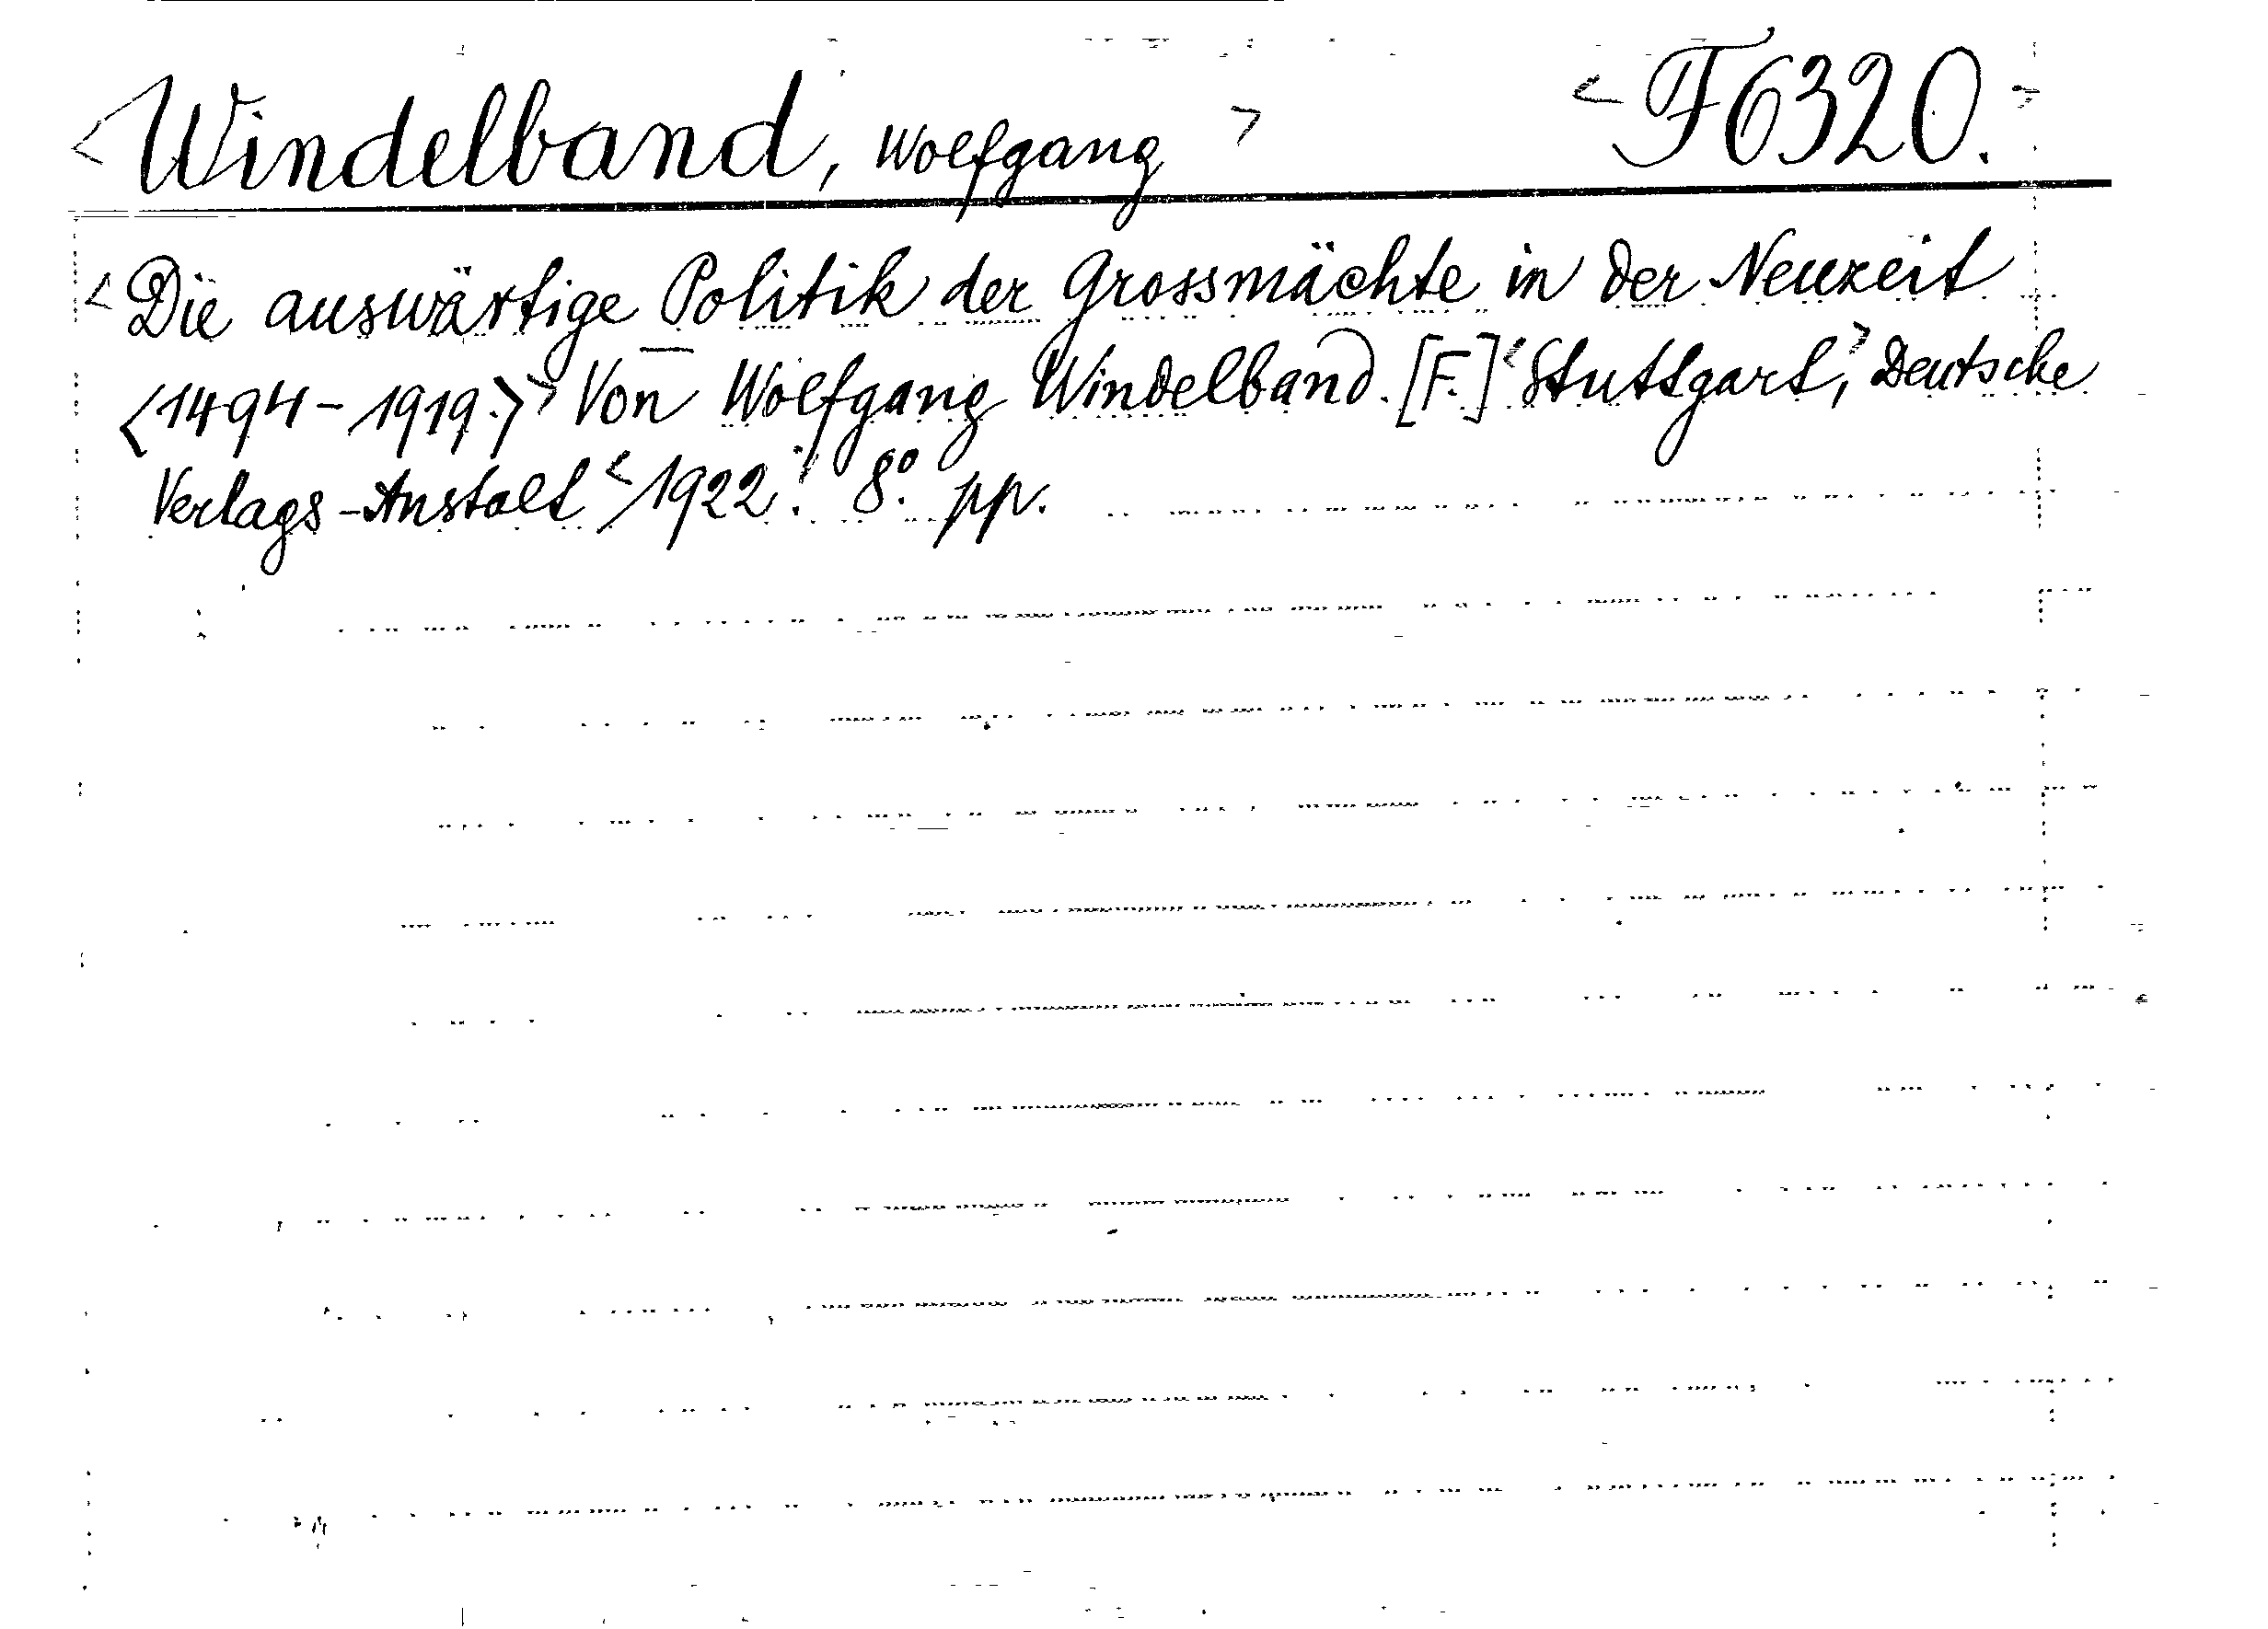 <Windelband, Wolfgang> <F6320.>
<Die auswärtige Politik der Grossmächte in der Neuzeit
<1494-1919.>> Von Wolfgang Windelband. [F.] <Stuttgart,> Deutsche
Verlags-Anstalt <1922. 8° pp.